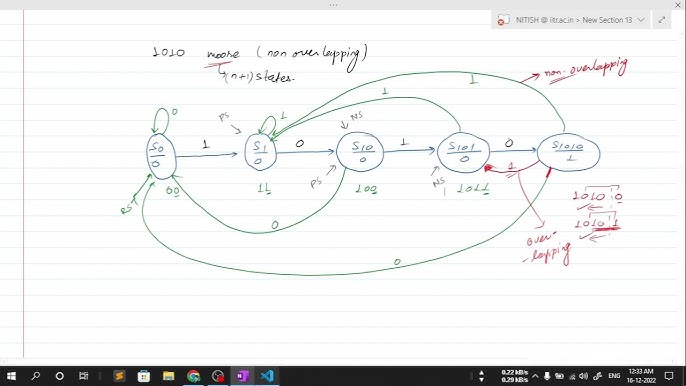 NITISH @ iitr.ac.in > New Section 13
1010 moore (non overlapping)
(n+1) states.
non-overlapping
1
1
0 1 PS NS
S0/0 1 S1/0 0 S10/0 1 S101/0 0 S1010/1
RST 00 11 PS 100 NS 1011 1
0
10100
10101
over-lapping
0
0.22 kB/s
0.29 kB/s
ENG
12:33 AM
16-12-2022